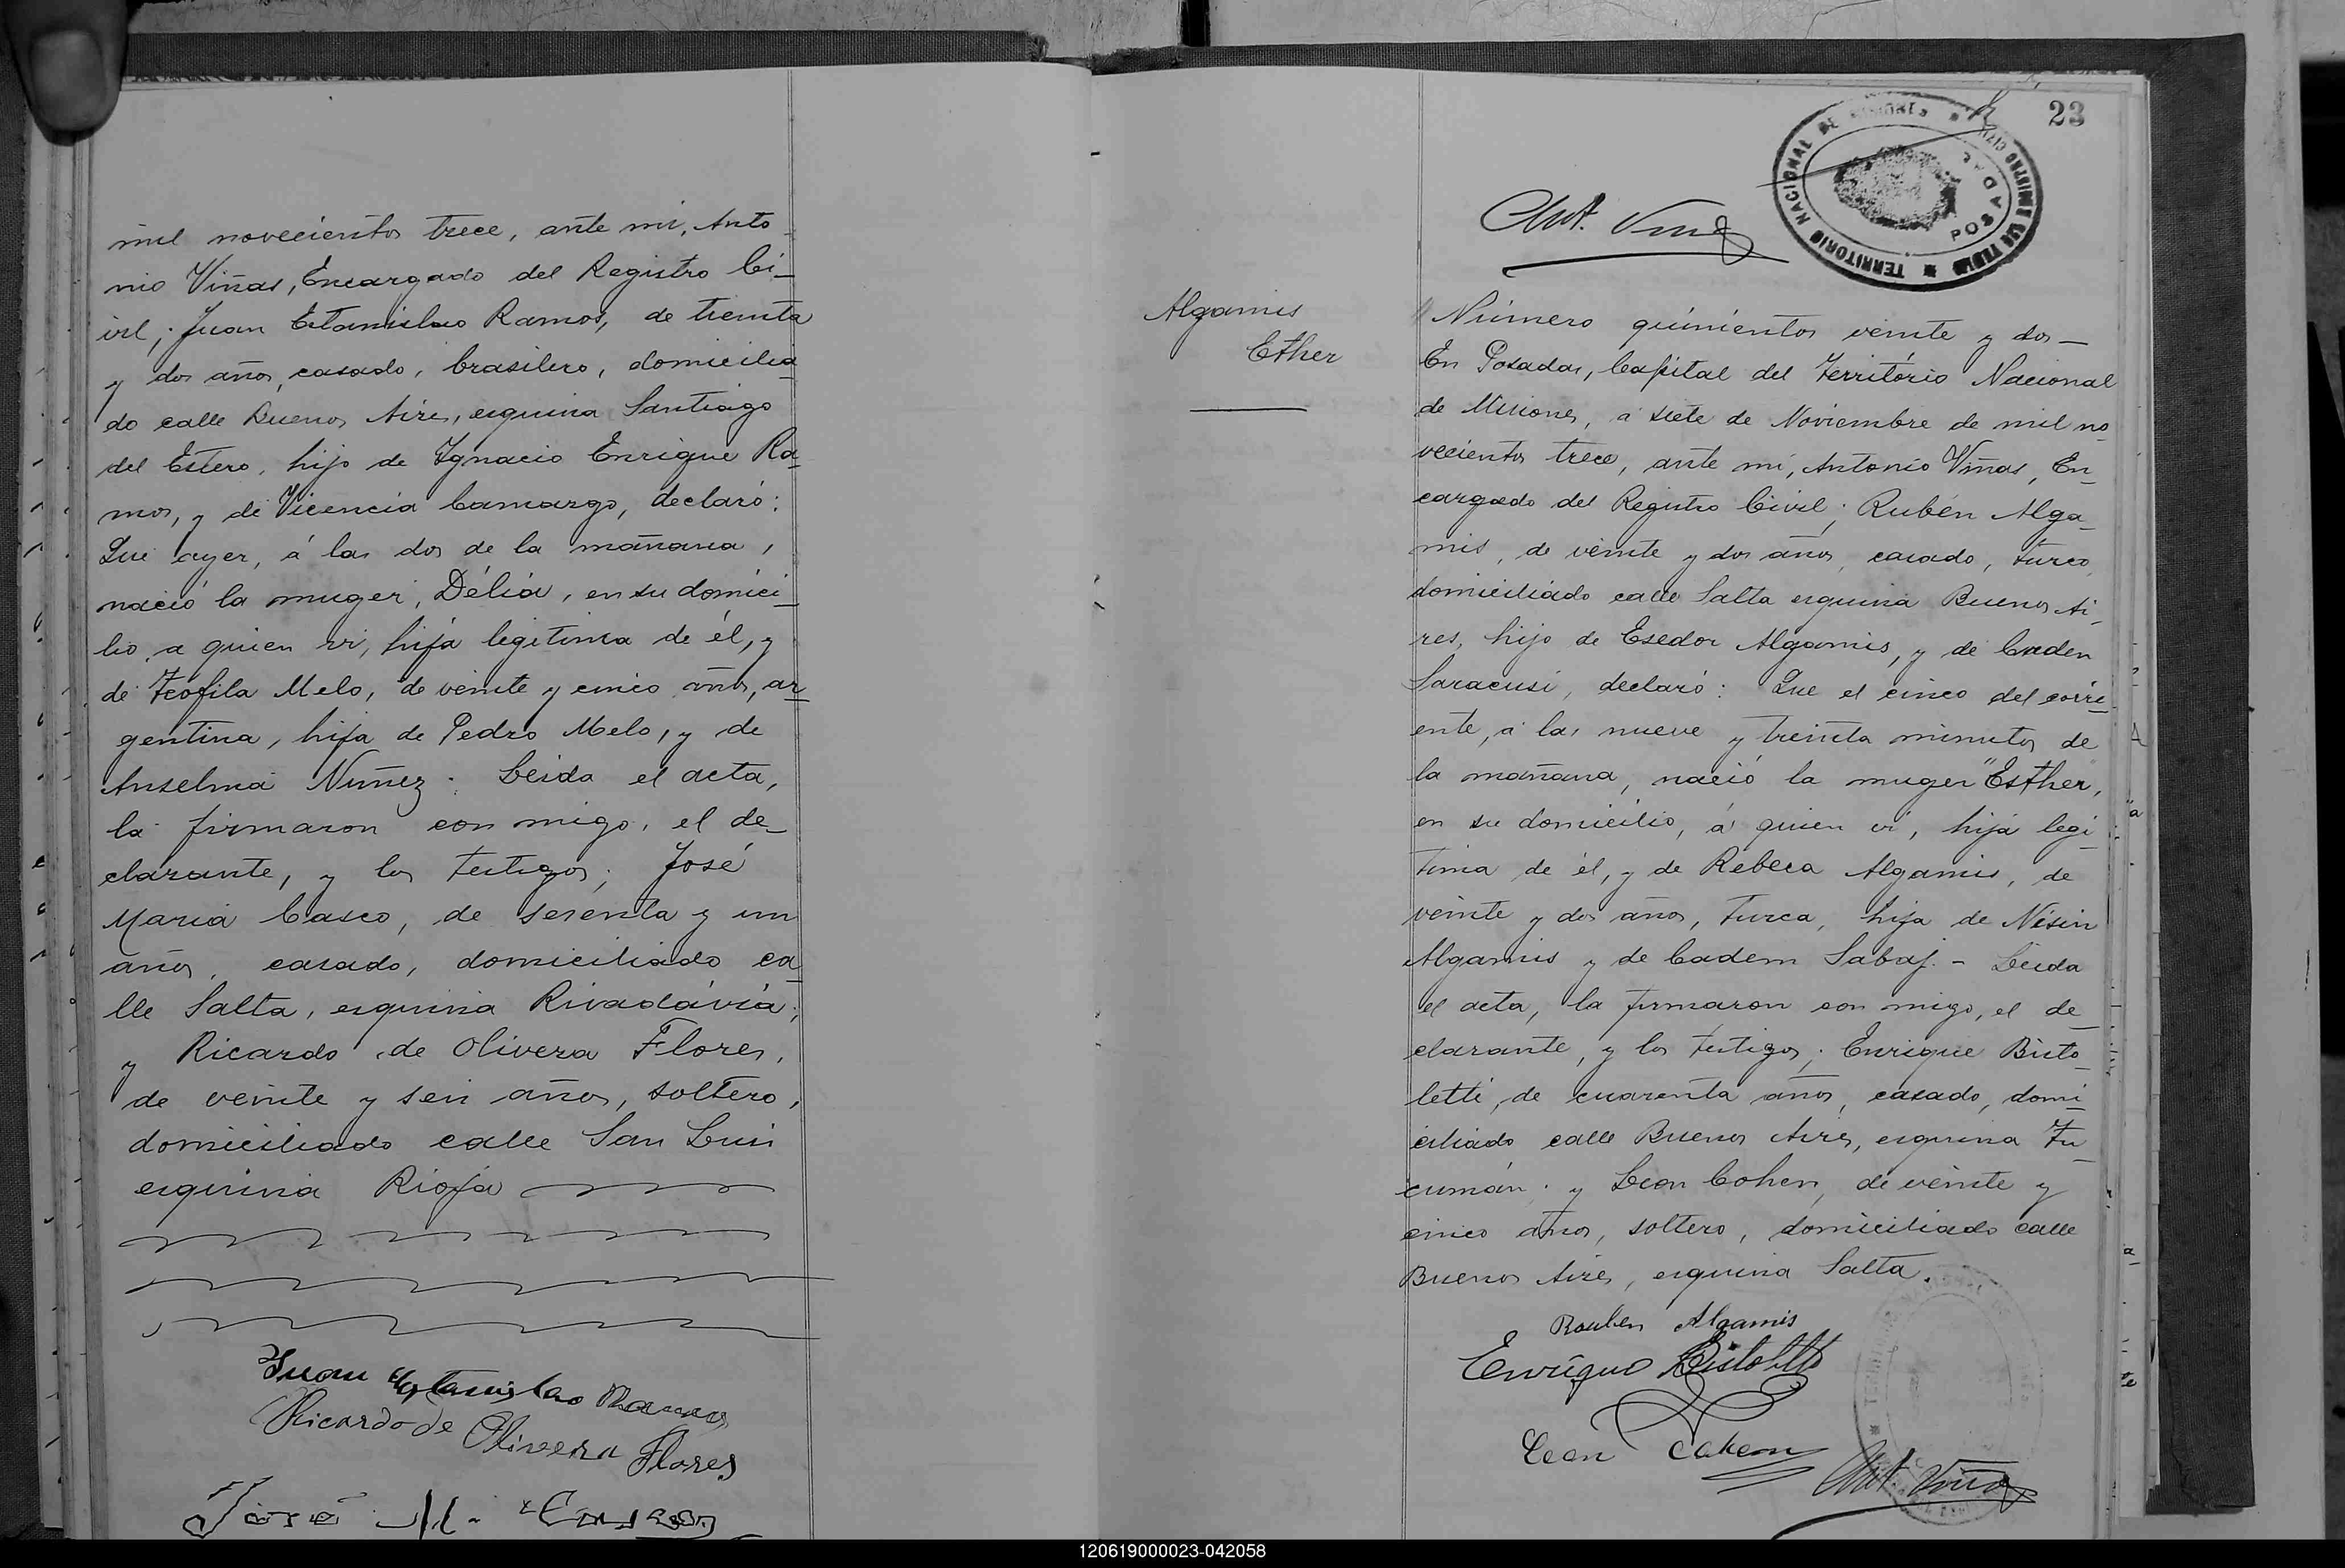 mil novecientos trece, ante mi, Anto-
nio Viñas, Encargado del Registro Ci-
vil; Juan Estanislao Ramos, de treinta
y dos años, casado, brasilero, domicilia
do calle Buenos Aires, esquina Santiago
del Estero, hijo de Ygnacio Enrique Ra-
mos, y de Vicencia Camargo, declaró:
Que ayer, á las dos de la mañana,
nació la muger, Délia, en su domici-
lio, a quien vi, hija legitima de él, y
de Teofila Melo, de veinte y cinco años, ar-
gentina, hija de Pedro Melo, y de
Anselma Nuñez. Leida el acta,
la firmaron con migo, el de-
clarante, y los testigos; José
Maria Casco, de sesenta y un
años, casado, domiciliado ca-
lle Salta, esquina Rivadávia;
y Ricardo de Olivera Flores,
de veinte y seis años, soltero,
domiciliado calle San Luis
esquina Rioja
Juan Estanislao Ramos
Ricardo de Olivera Flores
José M. Casco
23
TERRITORIO NACIONAL DE MISIONES
POSADAS
Ant. Viñas
Algamis
Esther
Número quinientos veinte y dos-
En Posadas, Capital del Território Nacional
de Misiones, a siete de Noviembre de mil no-
vecientos trece, ante mi, Antonio Viñas, En-
cargado del Registro Civil; Rubén Alga-
mis, de veinte y dos años, casado, turco,
domiciliado calle Salta esquina Buenos Ai-
res, hijo de Esedor Algamis, y de Caden
Saracusi, declaró: Que el cinco del corri-
ente, á las nueve y treinta minutos de
la mañana, nació la muger "Esther",
en su domicilio, á quien vi, hija legi-
tima de él, y de Rebeca Algamis, de
veinte y dos años, turca, hija de Nisin
Algamis y de Cadem Sabaj. - Leida
el acta, la firmaron con migo, el de-
clarante, y los testigos; Enrique Bisto
letti, de cuarenta años, casado, domi-
ciliado calle Buenos Aires, esquina Tu-
cumán; y Leon Cohen, de veinte y
cinco años, soltero, domiciliado calle
Buenos Aires, esquina Salta.
Rouben Algamis
Enrique Bistoletti
León Cohen
Ant Viñas
120619000023-042058